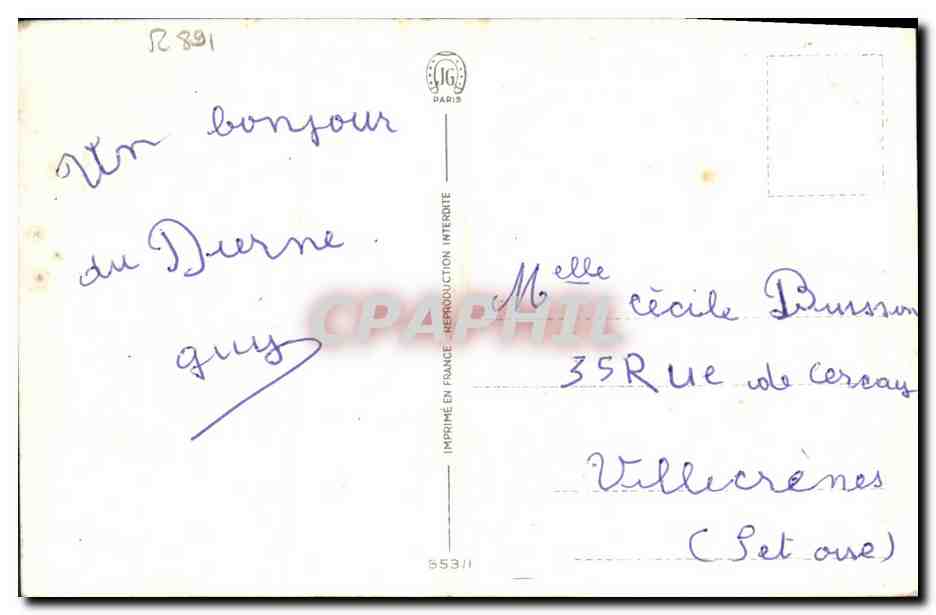 R 891
Un bonjour
du Durne
guy
JG
PARIS
IMPRIMÉ EN FRANCE - REPRODUCTION INTERDITE
553/1
CPAPHIL
Melle cécile Buisson
35 Rue de Cercay
Villecrènes
(S et oise)